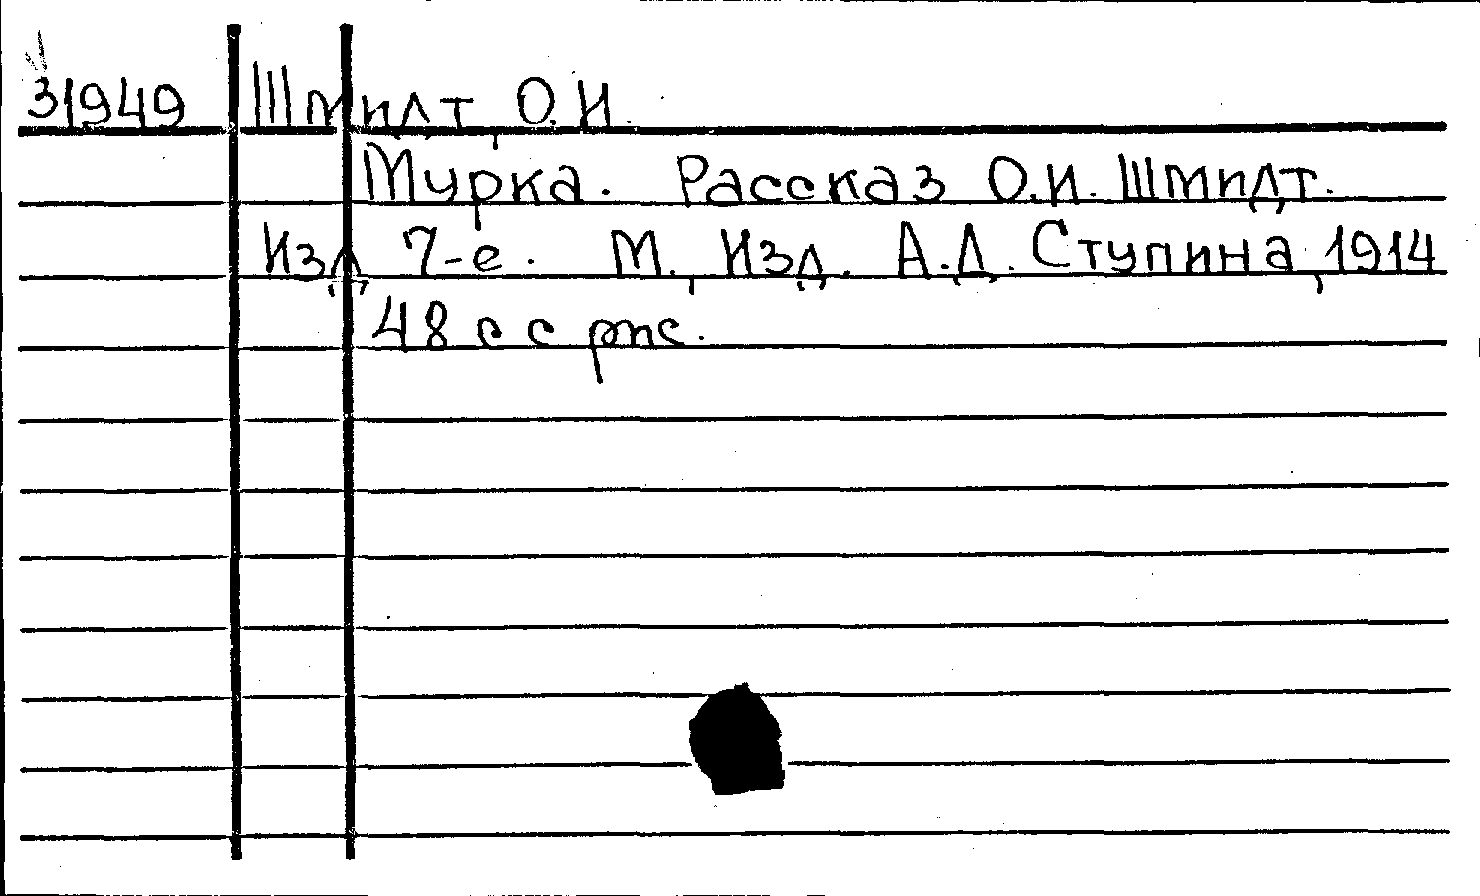 31949 Шмидт, О.И.
Мурка. Рассказ О.И. Шмидт.
Изд. 7-е. М., Изд. А.Д. Ступина, 1914
48 с с рис.